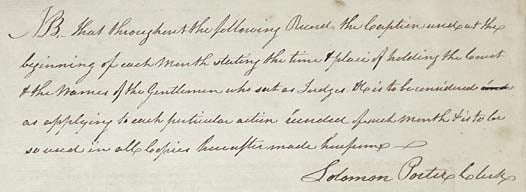 NB. That throughout the following Record the Caption used at the
beginning of each Month stating the time & place of holding the Court
& the Names of the Gentlemen who sat as Judges. It is to be considered
as applying to each particular action of such Month & is to be
so used in all Copies hereafter made
Solomon Porter Clerk